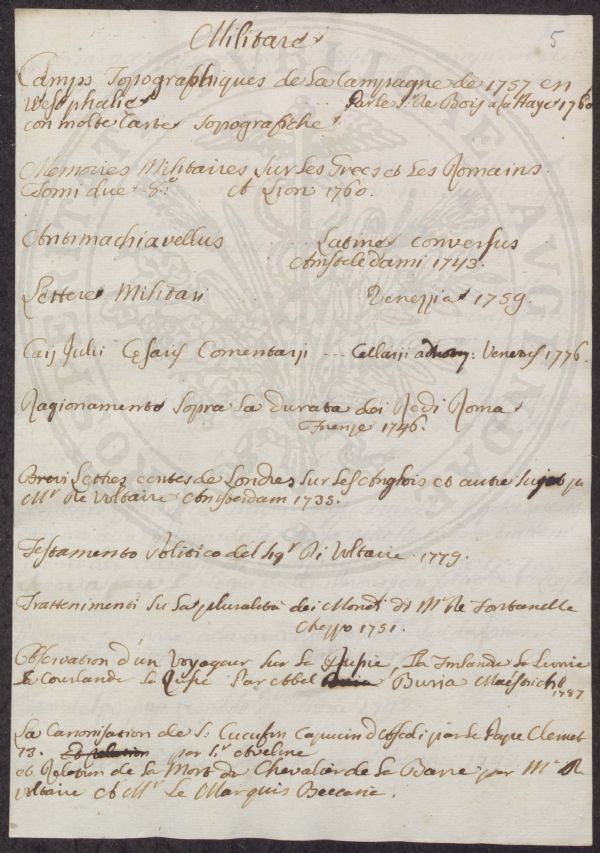 Militare
5
Camps Topographiques de La Campagne de 1757 en
Westphalie Par le Sr. de Bois a la Haye 1760
con molte Carte Topografiche
Memoires Militaires sur Les Grecs et Les Romains
Tomi due 8.o et Lion 1760.
Antimachiavellus Latine conversus
Amsteledami 1743.
Lettere Militari Venezzia 1759.
Caij Julii Cesaris Comentarji -- Cellarii Venetiis 1776.
Ragionamento Sopra La durata dei Re di Roma
Firenze 1746.
Lettres ecrites de Londres sur Les Anglois et autre Sujet
Mr. De Voltaire Amsterdam 1735.
Testamento Politico del Sigr. Di Voltaire 1779.
Trattenimenti su La pluralità dei Mondi di Mr. De Fontanelle
1751.
Observation d'un Voyageur sur Le La Finlande La Livonie
La Courlande La Par Abbel Burja Maestricht
1787
La Canonisation de S: Cucufin Capucin d'Ascoli par Le Pape Clement
13. Et relation par Sr. Aveline
et Relation de La Mort du Chevalier de La Barre par Mr. De
Voltaire et Mr. Le Marquis Beccarie.